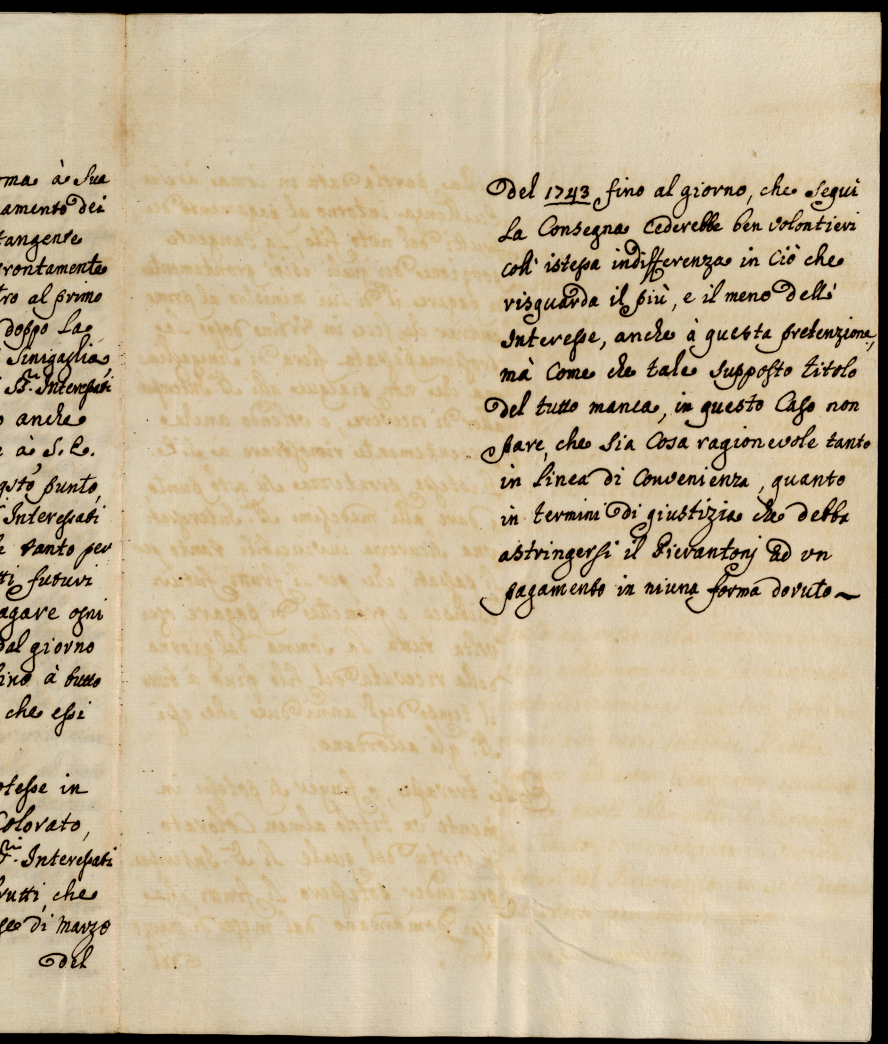 rma à sua
amento dei
tangente
prontamente
tro al primo
doppo La
Sinigaglia
SS.ri Interessati
o anche
e à S. E.
qsto punto,
Interessati
tanto per
tti futuri
agare ogni
dal giorno
fino à tutto
che essi
otesse in
Colorato,
S.ri Interessati
rutti che
se di Marzo
del
Del 1743 fino al giorno, che seguì
La Consegna Cederebbe ben volontieri
coll' istessa indifferenza in Ciò che
risguarda il più, e il meno dell'
Interesse, anche à questa pretenzione,
mà Come che tale supposto titolo
Del tutto manca, in questo Caso non
pare, che sia Cosa ragionevole tanto
in linea Di Convenienza, quanto
in termini Di giustizia che debba
astringersi il Pierantonj Ad vn
pagamento in niuna forma dovuto~